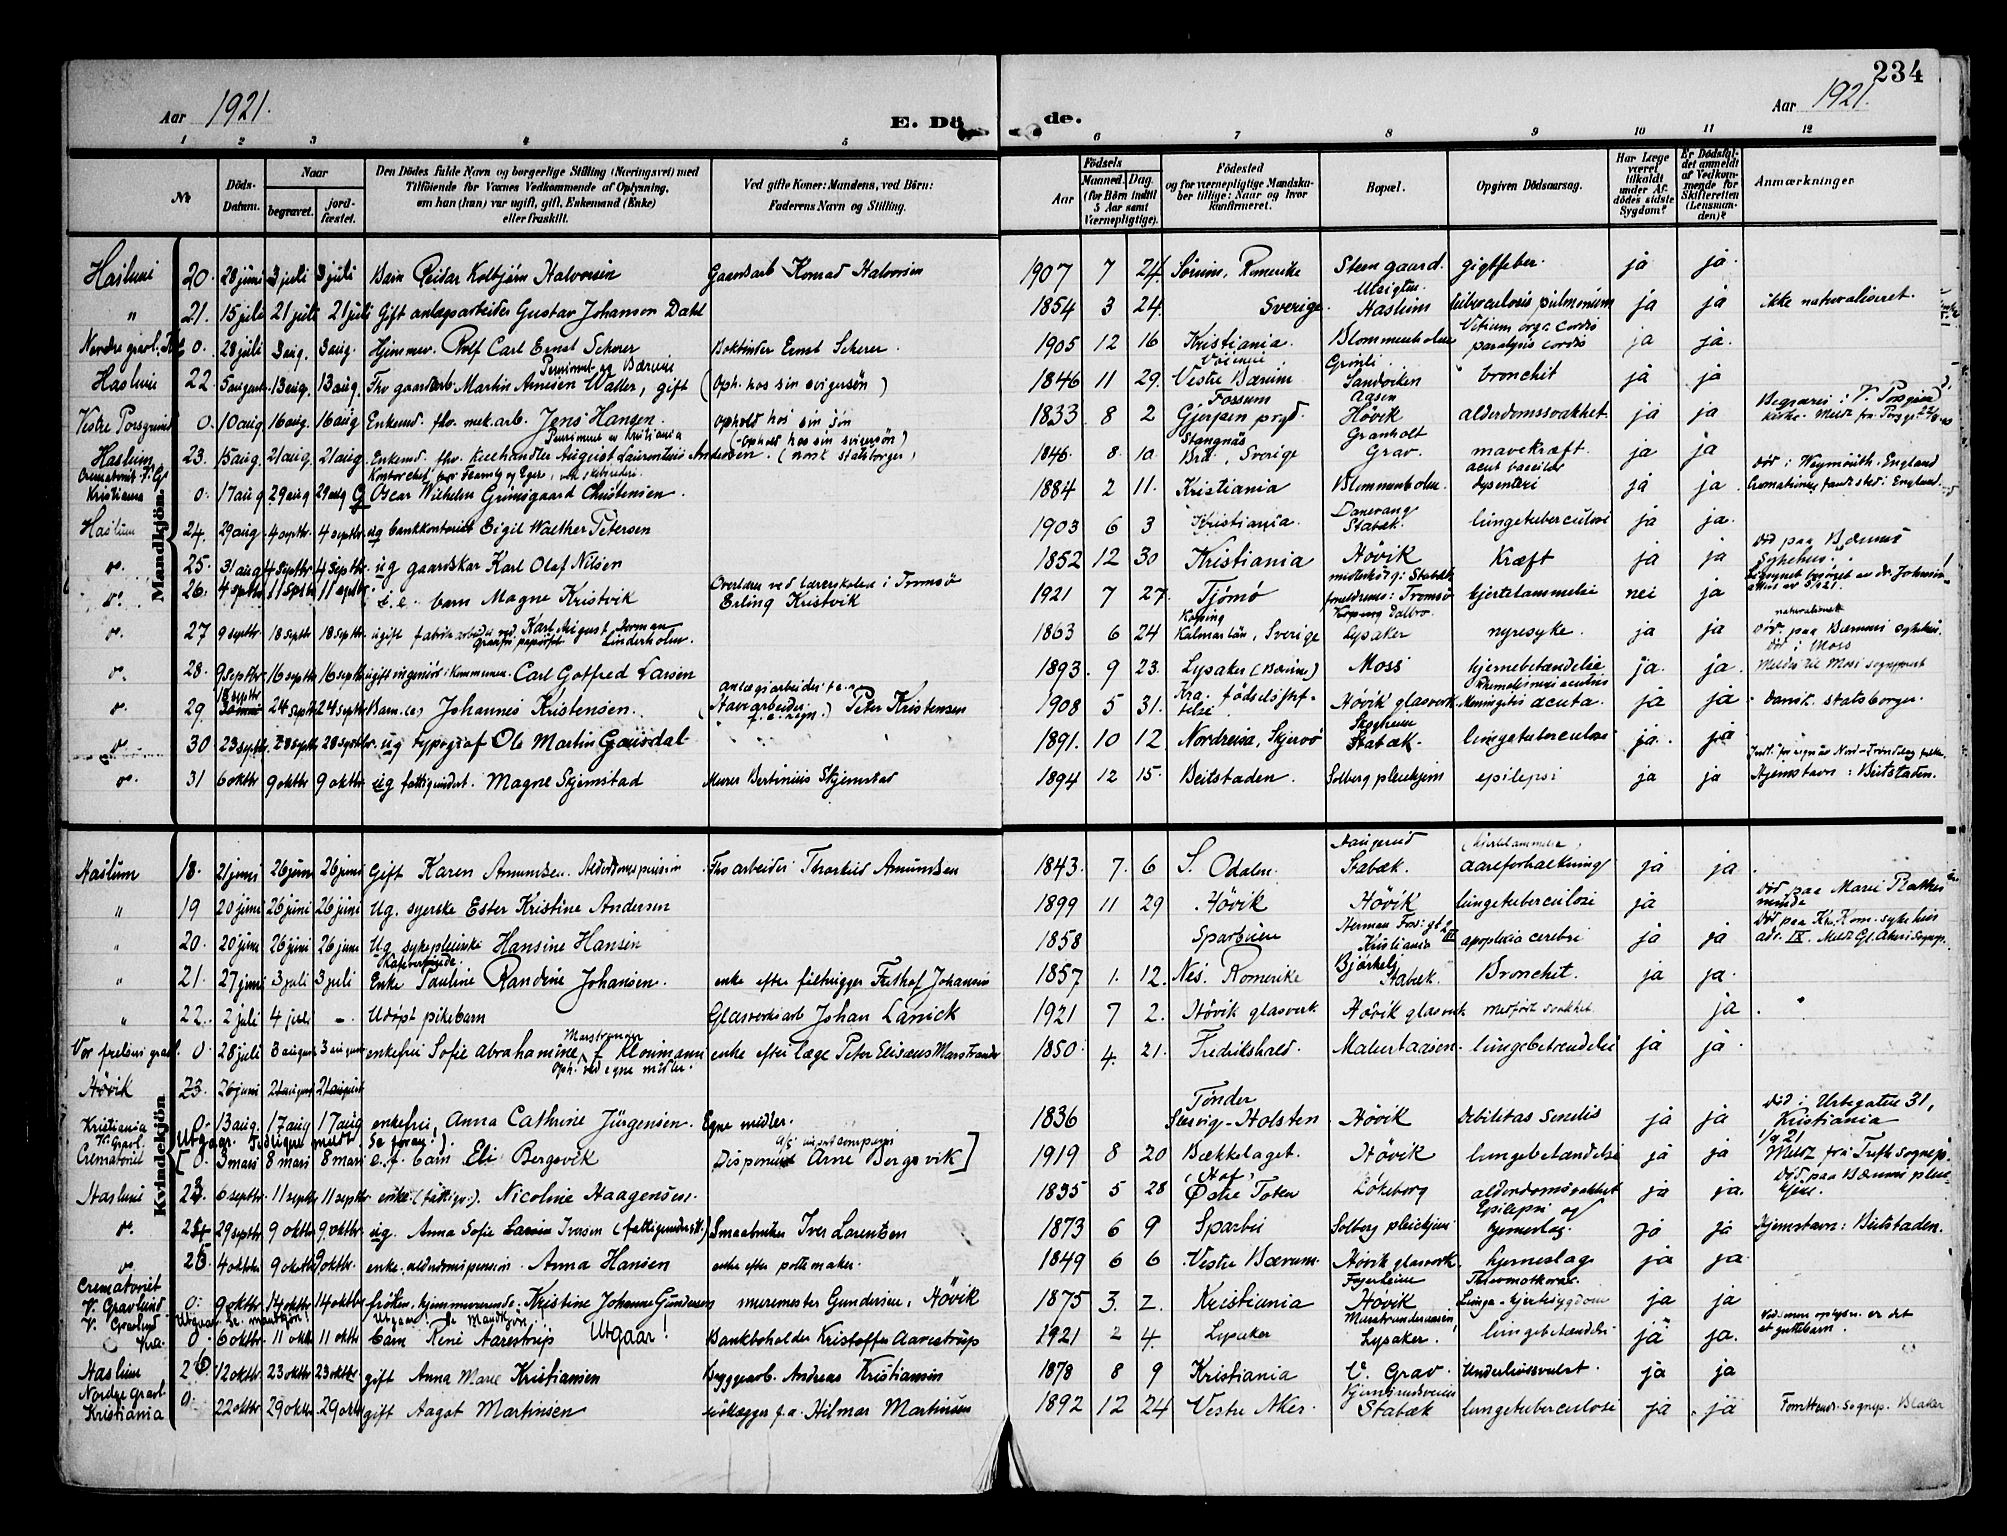 234
Aar 1921. E. Dö de. Aar 1921.
1 2 3 4 5 6 7 8 9 10 11 12
No Döds-Datum. Naar begravet. jordfæstet. Den Dödes fulde Navn og borgerlige Stilling (Næringsvei) med Tilföiende for Voxnes Vedkommende af Oplysning, om han (hun) var ugift, gift, Enkemand (Enke) eller fraskilt. Ved gifte Koner: Mandens, ved Börn: Faderens Navn og Stilling. Födsels Aar Maaned. Dag. (for Börn indtil 5 Aar samt Værnepligtige). Födested og for værnepligtige Mandskaber tillige: Naar og hvor konfirmeret. Bopæl. Opgiven Dödsaarsag. Har Læge været tilkaldt under Afdödes sidste Sygdom? Er Dödsfaldet anmeldt af Vedkommende for Skifteretten (Lensmanden)? Anmærkninger
Mandkjön.
Haslum 20. 28 juni 3 juli 3 juli Barn Reidar Kolbjörn Halvorsen Gaardsarb Konrad Halvorsen 1907 7 24. Sörum, Romerike Stein gaard. gigtfeber. ja ja.
" 21. 15 juli 21 juli 21 juli Gift anlægsarbeider Gustav Johanson Dahl 1854 3 24. Sverige. Utsigten Haslum tuberculosis pulmonum ja ja ikke naturaliseret.
Nordre gravl. 0. 28 juli 3 aug. 3 aug. Hjemmev. Rolf Carl Ernst Scherer Boktinder Ernst Scherer. 1905 12 16 Kristiania. Blommenholm Vitium org. cordis paralysis cordis ja ja.
Haslum 22 5 august. 13 aug. 13 aug. Fhv gaardarb Martin Arnesen Waller, gift (Oph. hos sin svigersön) 1846 11 29. Vestre Bærum Sandviken bronchit ja ja
Vestre Porsgrund 0. 10 aug 16 aug. 16 aug. Enkemd. fhv. mek. arb. Jens Hansen. Ophold hos sin sön 1833 8 2 Fossum Gjerpen prgd. Aasen Hövik alderdomssvakhet ja ja Begravet: V. Porsgrund kirke.
Haslum 23. 15 aug. 21 aug. 21 aug. Enkemd. fhv. August Laurentius Andersen. (Ophold hos sin svigersön) (norsk statsborger) 1846. 8. 10. Sverige Granholt Grav. mavekræft. ja ja
Crematoriet V. Gr. Kristiania 0. 17 aug 29 aug 29 aug G Oscar Wilhelm Grimsgaard Christensen. 1884 2 11. Kristiania Blommenholm. acut bacillær dysenteri ja ja. död i Weymouth. England Cremationen fandt sted i England.
Haslum 24. 29 aug. 4 septbr. 4 septbr. ug bankkontorist Eigil Walther Petersen 1903 6 3 Kristiania. Danevang Stabæk. lungetuberculose ja ja.
do. 25. 31 aug 4 septbr. 4 septbr. ug gaardskar Karl Olaf Nilsen 1852 12 30 Kristiania Hövik Kræft ja ja död paa Bærums Sykehus.
do. 26. 4 septbr 11 septbr 11 septbr e. barn Magne Kristvik Overlærer ved lærerskolen i Tromsö Erling Kristvik 1921 7 27. Tjömö midlertidig: Stabæk, foreldrene: Tromsö hjertelammelse nei ja
do. 27 9 septbr. 18 septbr 18 septbr. ugift fabrikarbeider Karl August Herman Linderholm. 1863 6 24 Köping Kalmarlän, Sverige Lysaker nyresyke. ja ja naturaliseret död paa Bærums sykehus.
do. 28. 9 septbr 16 septbr 16 septbr ugift ingeniör i kommunen. Carl Gotfred Larsen 1893. 9 23. Lysaker (Bærum) Moss hjernebetændelse ja. ja. död i Moss Meldt til Moss sogneprest
do. 29 18 septbr 24 septbr 24 septbr Barn. (e) Johannes Kristensen. (anlægsarbeider) Peter Kristensen 1908 5 31. Kra. födselsstiftelse Hövik glasverk. Meningitis acuta. ja ja Dansk statsborger.
do. 30 23 septbr. 28 septbr 28 septbr. ug typograf Ole Martin Gausdal 1891. 10 12. Nordreisa, Skjervö Skogheim Stabæk. lungetuberculose ja. ja
do. 31 6 oktbr 9 oktbr 9 oktbr ug fattigunderst. Magne Skjemstad Murer Bertinius Skjemstad 1894 12 15. Beitstaden. Solberg pleiehjem epilepsi ja ja Indl. for regn. av Nord-Tröndelag fylke. Hjemstavn: Beitstaden.
Kvindekjön
Haslum 18. 21 juni 26 juni 26 juni Gift Karen Amundsen. Alderdomspension Fhv arbeider Thorkild Amundsen 1843. 7. 6 S. Odalen. Haugerud Stabæk. hjertelammelse, aareforkalkning ja ja.
" 19 20 juni 26 juni 26 juni Ug. syerske Ester Kristine Andersen 1899 11 29 Hövik Hövik lungetuberculose ja död paa Marie Plathes minde
" 20. 20 juni 26 juni 26 juni Ug. sykepleierske Hansine Hansen 1858 Sparbuen Kristiania apoplexia cerebri ja ja Död paa Kr. Kom. sykehus adr. IX. Meldt Gl. Akers sognep.
" 21. 27 juni 3 juli 3 juli Enke Pauline Randine Johansen. enke efter filtrigger Frithof Johansen 1857 1. 12. Nes. Romerike Bjerkeli Stabæk. Bronchit. ja ja.
" 22. 2 juli 4 juli - Udöpt pikebarn Glasverksarb Johan Lanick 1921 7 2. Hövik glasverk Hövik glasverk medfödt svakhet. ja.
Vor frelsers gravl. 0. 28 juli 3 august 3 august enkefru Sofie Abrahamine Marstrander f. Kloumann Oph. ved egne midler. enke efter læge Peter Elisæus Marstrander 1850. 4. 21. Fredrikshald. lungebetændelse ja ja.
Hövik 23. 26 juni 21 august 21 august
Kristiania V. Gravl. 0. 13 aug. 17 aug 17 aug enkefru, Anna Cathrine Jürgensen. Egne midler. 1836 Tönder Slesvig-Holsten Hövik Debilitas senilis ja ja Död i Urtegaten 31, Kristiania
Utgaar.
Crematoriet [0. 3 mars 8 mars 8 mars e.f. barn Eli Bergsvik Disponent Arne Bergsvik] 1919 8 20 Bækkelaget. Hövik lungebetændelse ja ja 1/9 21 Meldt fra Treth. sognep.
Haslum 23 6 septbr. 11 septbr 11 septbr enke. (fattigv.). Nicoline Haagensen. 1835 5 28 (Hof) Östre Toten Lökeberg alderdomssvakhet ja ja. Död paa Bærums pleiehjem.
do. 24 29 septbr 9 oktbr 9. oktbr ug. Anna Sofie Larsen Iversen (fattigunderst.) Smaabruker Iver Larentsen 1873 6 9 Sparbu Solberg pleiehjem Epilepsi og hjerneslag. ja ja Hjemstavn: Beitstaden.
do. 25 4 oktbr 9 oktbr 9 oktbr. enke. alderdomspension. Anna Hansen enke efter pottemaker. 1849 6 6 Vestre Bærum. Hövik glasverk. hjerneslag ja ja.
Crematoriet V. Gravlund 0. 9 oktbr 14 oktbr 14 oktbr fröken. hjemmeværende. Kristine Johanne Gundersen muremester Gundersen, Hövik 1875 3. 2. Kristiania Hövik Lunge- hjertesygdom ja ja
V. Gravlund Kra. Utgaar Se mandkjön! 0 6 oktbr 11 oktb 11 oktbr Utgaar! Se Mandkjön! barn René Aarestrup Utgaar! Bankbokholder Kristoffer Aarestrup 1921 2 4. Lysaker Marstrandersveien, Lysaker. lungebetændelse ja ja. Ved senere oplysn. er det et guttebarn.
Haslum 26 12 oktbr 23 oktbr 23 oktbr gift Anna Marie Kristiansen Byggearb. Andreas Kristiansen 1878 8 9 Kristiania V. Grav. Underlivssvulst. ja ja
Nordre Gravl Kristiania 0. 22 oktbr 29 oktbr 29 oktbr gift Aagot Martinsen Hilmar Martinsen 1892 12 24 Vestre Aker. Stabæk lungetuberculose ja ja sognep. Blaker